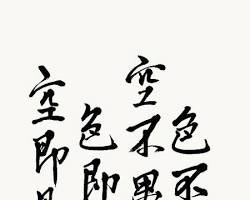 色不
空不異
色即
空即